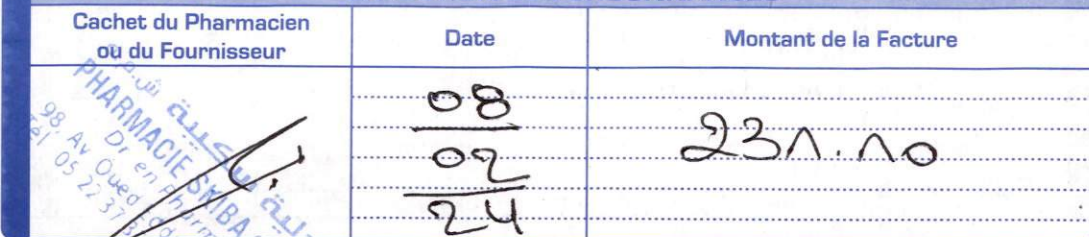 Cachet du Pharmacien
ou du Fournisseur
Date
Montant de la Facture
PHARMACIE SKIBA
Dr en Pharm
98, Av Oued
Tél 05 2237
08
02
24
231.10